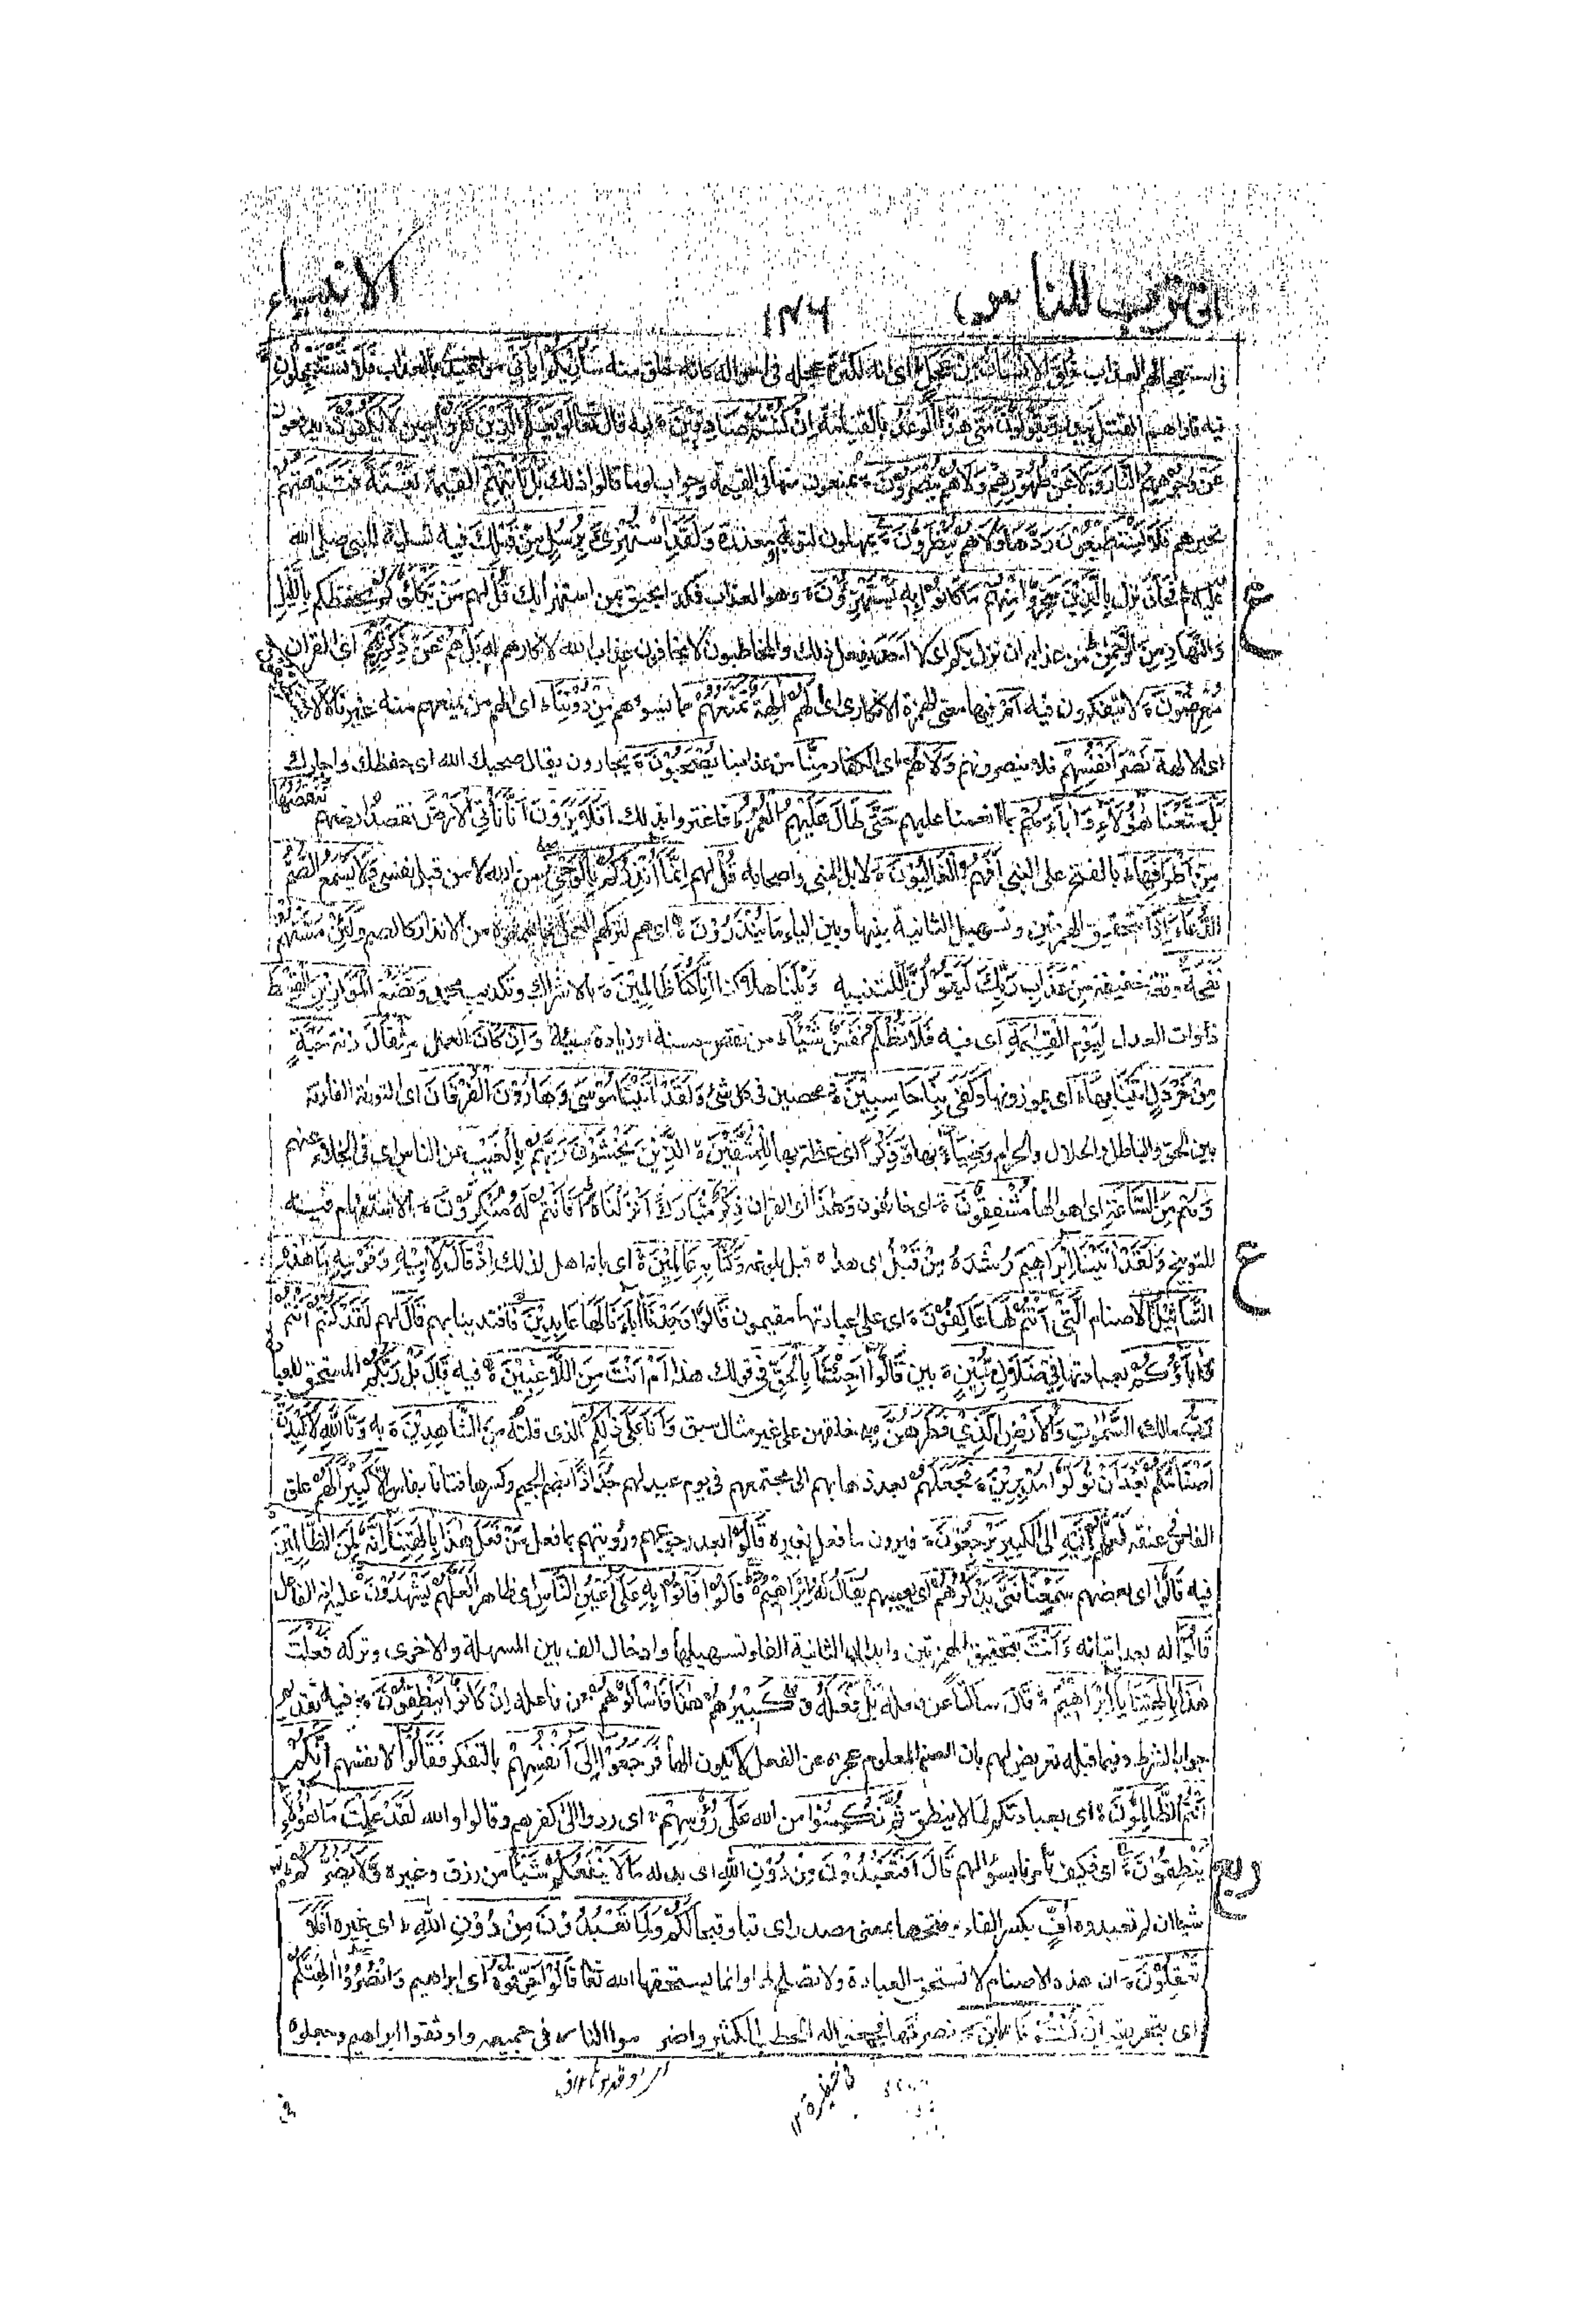 اقترب للناس
١٣٦٤
الانبياء
فى استعجالهم العذاب خُلِقَ الْاِنْسَانُ مِنْ عَجَلٍ اى انه لكثرة عجله فى احواله كانه خلق منه سَاُرِيْكُمْ اٰيَاتِيْ مواعيدى بالعذاب فَلَا تَسْتَعْجِلُوْنِ
فيه فاراهم القتل ببدر وَيَقُوْلُوْنَ مَتٰى هٰذَا الْوَعْدُ بالقيامة اِنْ كُنْتُمْ صَادِقِيْنَ فيه قال تعالى لَوْ يَعْلَمُ الَّذِيْنَ كَفَرُوْا حِيْنَ لَا يَكُفُّوْنَ يدفعون
عَنْ وُّجُوْهِهِمُ النَّارَ وَلَا عَنْ ظُهُوْرِهِمْ وَلَا هُمْ يُنْصَرُوْنَ يمنعون منها فى القيمة وجواب لو ما قالوا ذلك بَلْ تَاْتِيْهِمْ القيمة بَغْتَةً فَتَبْهَتُهُمْ
تحيرهم فَلَا يَسْتَطِيْعُوْنَ رَدَّهَا وَلَا هُمْ يُنْظَرُوْنَ يمهلون لتوبة او معذرة وَلَقَدِ اسْتُهْزِئَ بِرُسُلٍ مِّنْ قَبْلِكَ فيه تسلية للنبى صلى الله
عليه وسلم فَحَاقَ نزل بِالَّذِيْنَ سَخِرُوْا مِنْهُمْ مَّا كَانُوْا بِهٖ يَسْتَهْزِءُوْنَ وهو العذاب فكذا يحيق بمن استهزأ بك قُلْ لهم مَنْ يَّكْلَؤُكُمْ يحفظكم بِالَّيْلِ
وَالنَّهَارِ مِنَ الرَّحْمٰنِ من عذابه ان نزل بكم اى لا احد يفعل ذلك والمخاطبون لا يخافون عذاب الله لانكارهم له بَلْ هُمْ عَنْ ذِكْرِ رَبِّهِمْ اى القران
مُّعْرِضُوْنَ لا يتفكرون فيه اَمْ فيها معنى الهمزة الانكارى اى لَهُمْ اٰلِهَةٌ تَمْنَعُهُمْ مما يسوءهم مِّنْ دُوْنِنَا اى الهم من يمنعهم منه غيرنا لَا
اى الالهة نَصْرَ اَنْفُسِهِمْ فلا ينصرونهم وَلَا هُمْ اى الكفار مِنَّا من عذابنا يُصْحَبُوْنَ يجارون يقال صحبك الله اى حفظك واجارك
بَلْ مَتَّعْنَا هٰؤُلَاءِ وَاٰبَاءَهُمْ بما انعمنا عليهم حَتّٰى طَالَ عَلَيْهِمُ الْعُمُرُ فاغتروا بذلك اَفَلَا يَرَوْنَ اَنَّا نَاْتِى الْاَرْضَ نقصد ارضهم نَنْقُصُهَا
مِنْ اَطْرَافِهَا بالفتح على النبى اَفَهُمُ الْغَالِبُوْنَ لا بل النبى واصحابه قُلْ لهم اِنَّمَا اُنْذِرُكُمْ بِالْوَحْيِ من الله لا من قبل نفسى وَلَا يَسْمَعُ الصُّمُّ
الدُّعَاءَ اِذَا بتحقيق الهمزتين وتسهيل الثانية بينها وبين الياء مَا يُنْذَرُوْنَ اى هم لتركهم العمل بما سمعوه من الانذار كالصم وَلَئِنْ مَّسَّتْهُمْ
نَفْحَةٌ وقعة خفيفة مِّنْ عَذَابِ رَبِّكَ لَيَقُوْلُنَّ يَا للتنبيه وَيْلَنَا هلاكنا اِنَّا كُنَّا ظَالِمِيْنَ بالاشراك وتكذيب محمد وَنَضَعُ الْمَوَازِيْنَ الْقِسْطَ
ذوات العدل لِيَوْمِ الْقِيٰمَةِ اى فيه فَلَا تُظْلَمُ نَفْسٌ شَيْئًا من نقص حسنة او زيادة سيئة وَاِنْ كَانَ العمل مِثْقَالَ زنة حَبَّةٍ
مِّنْ خَرْدَلٍ اَتَيْنَا بِهَا اى بموزونها وَكَفٰى بِنَا حَاسِبِيْنَ محصين فى كل شئ وَلَقَدْ اٰتَيْنَا مُوْسٰى وَهَارُوْنَ الْفُرْقَانَ اى التورٰة الفارقة
بين الحق والباطل والحلال والحرام وَضِيَاءً بها وَّذِكْرًا اى عظة بها لِّلْمُتَّقِيْنَ الَّذِيْنَ يَخْشَوْنَ رَبَّهُمْ بِالْغَيْبِ عن الناس اى فى الخلاء عنهم
وَهُمْ مِّنَ السَّاعَةِ اى اهوالها مُشْفِقُوْنَ اى خائفون وَهٰذَا اى القران ذِكْرٌ مُّبَارَكٌ اَنْزَلْنَاهُ اَفَاَنْتُمْ لَهٗ مُنْكِرُوْنَ الاستفهام فيه
للتوبيخ وَلَقَدْ اٰتَيْنَا اِبْرَاهِيْمَ رُشْدَهٗ مِنْ قَبْلُ اى هداه قبل بلوغه وَكُنَّا بِهٖ عَالِمِيْنَ اى بانه اهل لذلك اِذْ قَالَ لِاَبِيْهِ وَقَوْمِهٖ مَا هٰذِهِ
التَّمَاثِيْلُ الاصنام الَّتِيْ اَنْتُمْ لَهَا عَاكِفُوْنَ اى على عبادتها مقيمون قَالُوْا وَجَدْنَا اٰبَاءَنَا لَهَا عَابِدِيْنَ فاقتدينا بهم قَالَ لهم لَقَدْ كُنْتُمْ اَنْتُمْ
وَاٰبَاؤُكُمْ بعبادتها فِيْ ضَلَالٍ مُّبِيْنٍ بين قَالُوْا اَجِئْتَنَا بِالْحَقِّ فى قولك هذا اَمْ اَنْتَ مِنَ اللَّاعِبِيْنَ فيه قَالَ بَلْ رَّبُّكُمْ المستحق للعبا
رَبُّ مالك السَّمٰوٰتِ وَالْاَرْضِ الَّذِيْ فَطَرَهُنَّ خلقهن على غير مثال سبق وَاَنَا عَلٰى ذٰلِكُمْ الذى قلته مِّنَ الشَّاهِدِيْنَ به وَتَاللهِ لَاَكِيْدَنَّ
اَصْنَامَكُمْ بَعْدَ اَنْ تُوَلُّوْا مُدْبِرِيْنَ فَجَعَلَهُمْ بعد ذهابهم الى مجتمعهم فى يوم عيد لهم جُذَاذًا بضم الجيم وكسرها فتاتا بفاس اِلَّا كَبِيْرًا لَّهُمْ علق
الفاس فى عنقه لَعَلَّهُمْ اِلَيْهِ الى الكبير يَرْجِعُوْنَ فيرون ما فعل بغيره قَالُوْا بعد رجوعهم ورؤيتهم ما فعل مَنْ فَعَلَ هٰذَا بِاٰلِهَتِنَا اِنَّهٗ لَمِنَ الظَّالِمِيْنَ
فيه قَالُوْا اى بعضهم سَمِعْنَا فَتًى يَّذْكُرُهُمْ اى يعيبهم يُقَالُ لَهٗ اِبْرَاهِيْمُ قَالُوْا فَاْتُوْا بِهٖ عَلٰى اَعْيُنِ النَّاسِ اى ظاهرا لَعَلَّهُمْ يَشْهَدُوْنَ عليه انه الفاعل
قَالُوْا له بعد اتيانه ءَاَنْتَ بتحقيق الهمزتين وابدال الثانية الفا وتسهيلها وادخال الف بين المسهلة والاخرى وتركه فَعَلْتَ
هٰذَا بِاٰلِهَتِنَا يَا اِبْرَاهِيْمُ قَالَ ساكتا عن فعله بَلْ فَعَلَهٗ كَبِيْرُهُمْ هٰذَا فَاسْاَلُوْهُمْ عن فاعله اِنْ كَانُوْا يَنْطِقُوْنَ فيه تقديم
جواب الشرط وفيما قبله تعريض لهم بان الصنم المعلوم عجزه عن الفعل لا يكون الها فَرَجَعُوْا اِلٰى اَنْفُسِهِمْ بالتفكر فَقَالُوْا لانفسهم اِنَّكُمْ
اَنْتُمُ الظَّالِمُوْنَ اى بعبادتكم لما لا ينطق ثُمَّ نُكِسُوْا من الله عَلٰى رُءُوْسِهِمْ اى ردوا الى كفرهم وقالوا والله لَقَدْ عَلِمْتَ مَا هٰؤُلَاءِ
يَنْطِقُوْنَ اى فكيف تأمرنا بسؤالهم قَالَ اَفَتَعْبُدُوْنَ مِنْ دُوْنِ اللهِ اى بدله مَا لَا يَنْفَعُكُمْ شَيْئًا من رزق وغيره وَّلَا يَضُرُّكُمْ
شيئا ان لم تعبدوه اُفٍّ بكسر الفاء وفتحها بمعنى مصدر اى تبا وقبحا لَّكُمْ وَلِمَا تَعْبُدُوْنَ مِنْ دُوْنِ اللهِ اى غيره اَفَلَا
تَعْقِلُوْنَ ان هذه الاصنام لا تستحق العبادة ولا تصلح لها وانما يستحقها الله تعا قَالُوْا حَرِّقُوْهُ اى ابراهيم وَانْصُرُوْا اٰلِهَتَكُمْ
اى بتحريقه اِنْ كُنْتُمْ فَاعِلِيْنَ نصرتها فجمعوا له الحطب الكثير واضرموا النار فى جميعه واوثقوا ابراهيم وجعلوه
فى